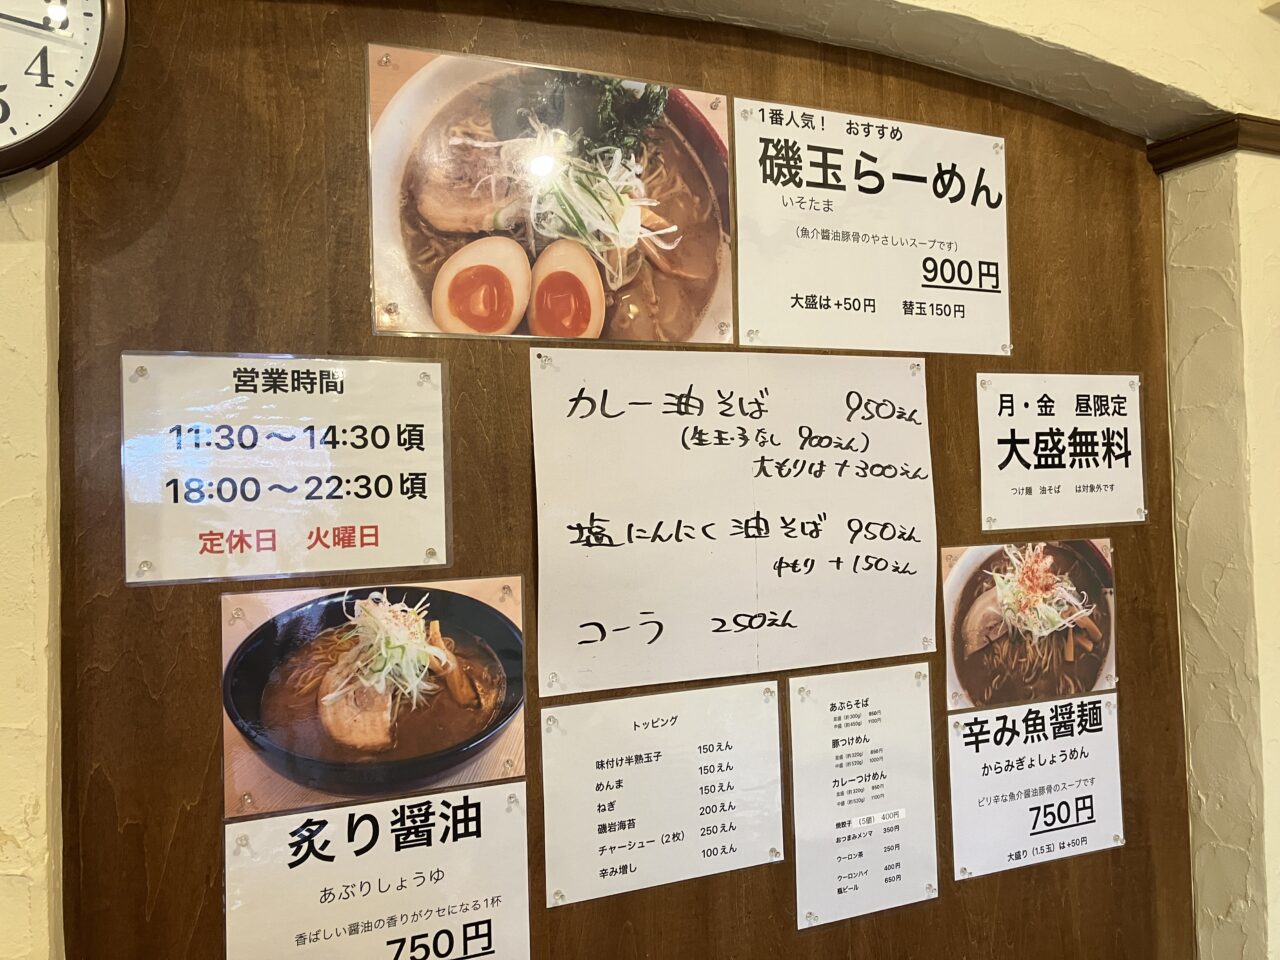 4
5
1番人気！ おすすめ
磯玉らーめん
いそたま
（魚介醤油豚骨のやさしいスープです）
900円
大盛は+50円 替玉150円
営業時間
11:30～14:30頃
18:00～22:30頃
定休日 火曜日
カレー油そば 950えん
(生玉子なし 900えん)
大もりは +300えん
塩にんにく油そば 950えん
中もり +150えん
コーラ 250えん
月・金 昼限定
大盛無料
つけ麺 油そば は対象外です
炙り醤油
あぶりしょうゆ
香ばしい醤油の香りがクセになる1杯
750円
トッピング
味付け半熟玉子 150えん
めんま 150えん
ねぎ 150えん
磯岩海苔 200えん
チャーシュー（2枚） 250えん
辛み増し 100えん
あぶらそば
並盛（約300g） 850円
中盛（約450g） 1100円
豚つけめん
並盛（約320g） 850円
中盛（約520g） 1000円
カレーつけめん
並盛（約320g） 950円
中盛（約520g） 1100円
焼餃子 （5個） 400円
おつまみメンマ 350円
ウーロン茶 250円
ウーロンハイ 400円
瓶ビール 650円
辛み魚醤麺
からみぎょしょうめん
ピリ辛な魚介醤油豚骨のスープです
750円
大盛り（1.5玉）は+50円